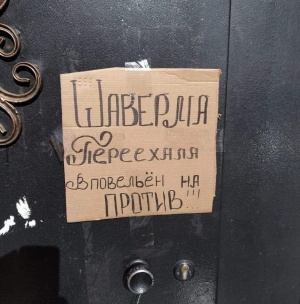 Шаверма
Переехала
в повельён на
ПРОТИВ!!!